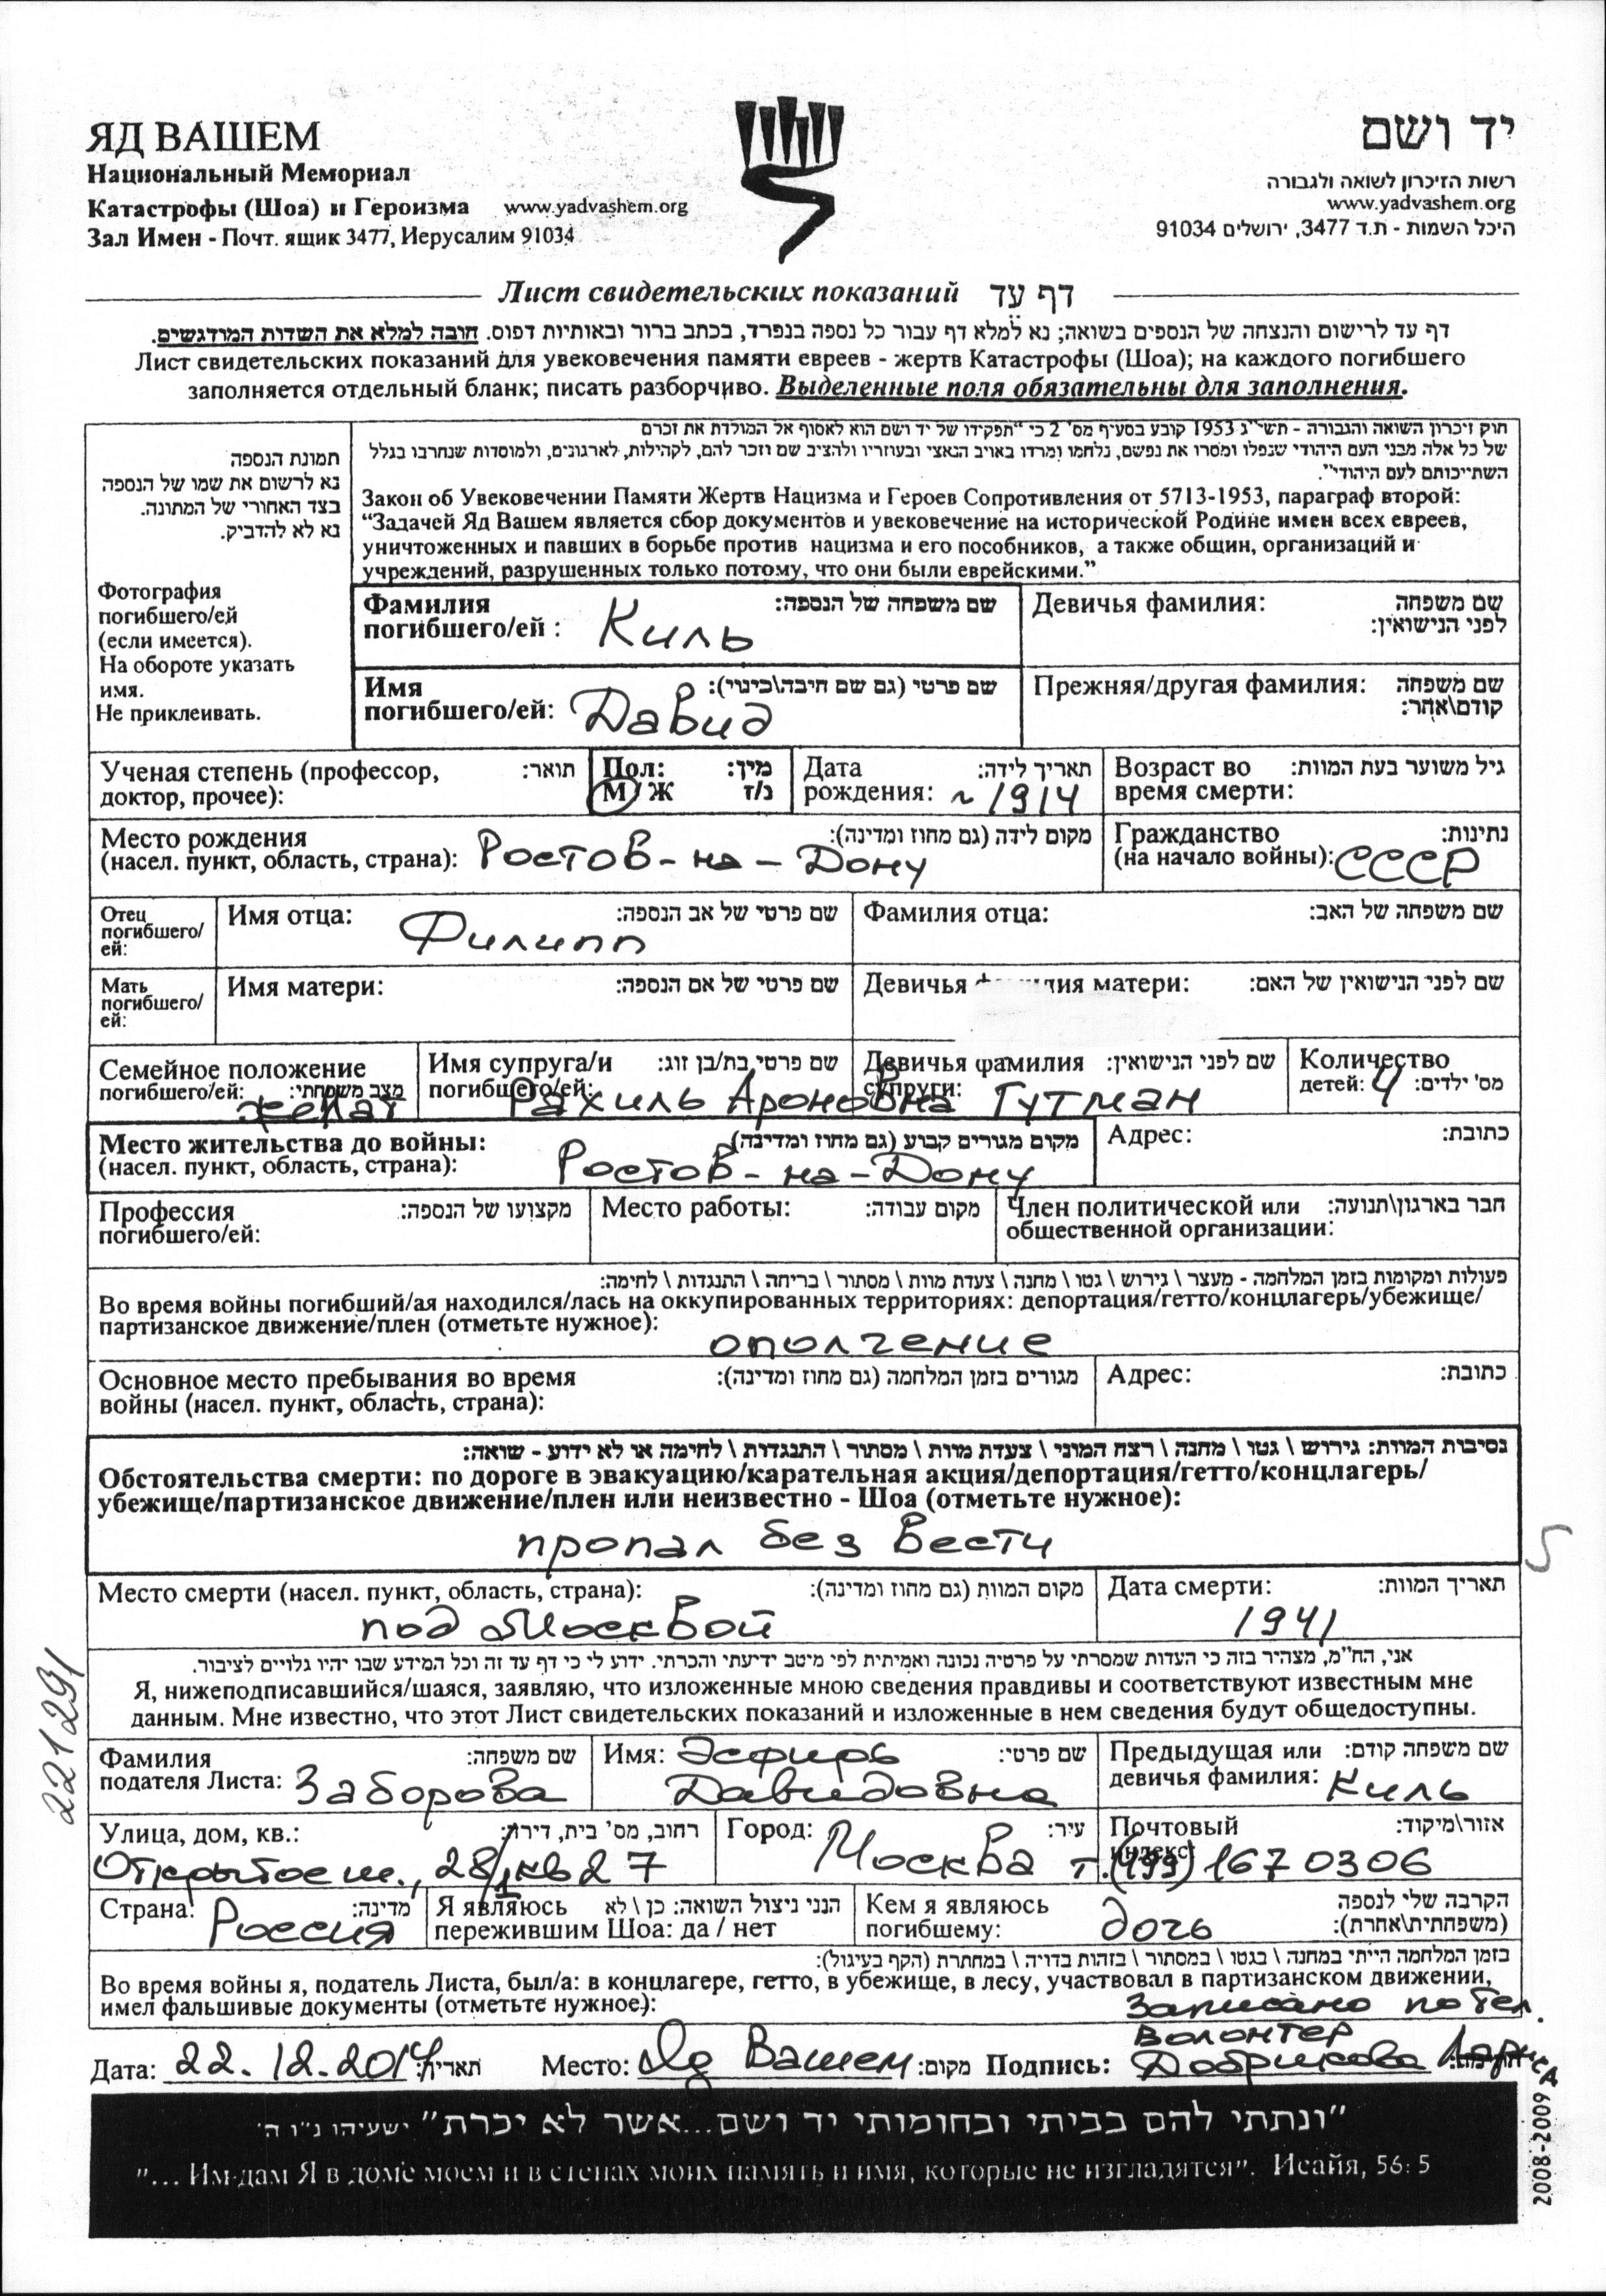 ЯД ВАШЕМ
Национальный Мемориал
Катастрофы (Шоа) и Героизма www.yadvashem.org
Зал Имен - Почт. ящик 3477, Иерусалим 91034
יד ושם
רשות הזיכרון לשואה ולגבורה
www.yadvashem.org
היכל השמות - ת.ד 3477, ירושלים 91034
Лист свидетельских показаний דף עד
דף עד לרישום והנצחה של הנספים בשואה; נא למלא דף עבור כל נספה בנפרד, בכתב ברור ובאותיות דפוס. חובה למלא את השדות המודגשים.
Лист свидетельских показаний для увековечения памяти евреев - жертв Катастрофы (Шоа); на каждого погибшего
заполняется отдельный бланк; писать разборчиво. Выделенные поля обязательны для заполнения.
תמונת הנספה
נא לרשום את שמו של הנספה
בצד האחורי של המתונה.
נא לא להדביק.
Фотография
погибшего/ей
(если имеется).
На обороте указать
имя.
Не приклеивать.
חוק זיכרון השואה והגבורה - תשי"ג 1953 קובע בסעיף מס' 2 כי "תפקידו של יד ושם הוא לאסוף אל המולדת את זכרם
של כל אלה מבני העם היהודי שנפלו ומסרו את נפשם, נלחמו ומרדו באויב הנאצי ובעוזריו ולהציב שם וזכר להם, לקהילות, לארגונים, ולמוסדות שנחרבו בגלל
השתייכותם לעם היהודי".
Закон об Увековечении Памяти Жертв Нацизма и Героев Сопротивления от 5713-1953, параграф второй:
“Задачей Яд Вашем является сбор документов и увековечение на исторической Родине имен всех евреев,
уничтоженных и павших в борьбе против нацизма и его пособников, а также общин, организаций и
учреждений, разрушенных только потому, что они были еврейскими.”
Фамилия שם משפחה של הנספה:
погибшего/ей : Киль
Девичья фамилия: שם משפחה
לפני הנישואין:
Имя שם פרטי (גם שם חיבה\כינוי):
погибшего/ей: Давид
Прежняя/другая фамилия: שם משפחה
קודם\אחר:
Ученая степень (профессор, תואר:
доктор, прочее):
Пол: מין:
М/Ж ז/נ
Дата תאריך לידה:
рождения: ~ 1914
Возраст во גיל משוער בעת המוות:
время смерти:
Место рождения מקום לידה (גם מחוז ומדינה):
(насел. пункт, область, страна): Ростов-на-Дону
Гражданство נתינות:
(на начало войны): СССР
Отец
погибшего/
ей:
Имя отца: שם פרטי של אב הנספה:
Филипп
Фамилия отца: שם משפחה של האב:
Мать
погибшего/
ей:
Имя матери: שם פרטי של אם הנספה:
Девичья фамилия матери: שם לפני הנישואין של האם:
Семейное положение
погибшего/ей: מצב משפחתי:
женат
Имя супруга/и שם פרטי בת/בן זוג:
погибшего/ей: Рахиль Ароновна
Девичья фамилия שם לפני הנישואין:
супруги: Гутман
Количество
детей: 4 מס' ילדים:
Место жительства до войны: מקום מגורים קבוע (גם מחוז ומדינה)
(насел. пункт, область, страна): Ростов-на-Дону
Адрес: כתובת:
Профессия מקצועו של הנספה:
погибшего/ей:
Место работы: מקום עבודה:
Член политической или חבר בארגון\תנועה:
общественной организации:
פעולות ומקומות בזמן המלחמה - מעצר \ גירוש \ גטו \ מחנה \ צעדת מוות \ מסתור \ בריחה \ התנגדות \ לחימה:
Во время войны погибший/ая находился/лась на оккупированных территориях: депортация/гетто/концлагерь/убежище/
партизанское движение/плен (отметьте нужное):
ополчение
Основное место пребывания во время מגורים בזמן המלחמה (גם מחוז ומדינה):
войны (насел. пункт, область, страна):
Адрес: כתובת:
נסיבות המוות: גירוש \ גטו \ מחנה \ רצח המוני \ צעדת מוות \ מסתור \ התנגדות \ לחימה או לא ידוע - שואה:
Обстоятельства смерти: по дороге в эвакуацию/карательная акция/депортация/гетто/концлагерь/
убежище/партизанское движение/плен или неизвестно - Шоа (отметьте нужное):
пропал без вести
5
Место смерти (насел. пункт, область, страна): מקום המוות (גם מחוז ומדינה):
под Москвой
Дата смерти: תאריך המוות:
1941
אני, הח"מ, מצהיר בזה כי העדות שמסרתי על פרטיה נכונה ואמיתית לפי מיטב ידיעתי והכרתי. ידוע לי כי דף עד זה וכל המידע שבו יהיו גלויים לציבור.
Я, нижеподписавшийся/шаяся, заявляю, что изложенные мною сведения правдивы и соответствуют известным мне
данным. Мне известно, что этот Лист свидетельских показаний и изложенные в нем сведения будут общедоступны.
221291
Фамилия שם משפחה:
подателя Листа: Заборова
Имя: Эсфирь שם פרטי:
Давидовна
Предыдущая или שם משפחה קודם:
девичья фамилия: Киль
Улица, дом, кв.: רחוב, מס' בית, דירה:
Открытое ш., 28/1 кв 27
Город: Москва עיר:
Почтовый אזור\מיקוד:
индекс: т.(499) 167 0306
Страна: Россия מדינה:
Я являюсь הנני ניצול השואה: כן \ לא
пережившим Шоа: да / нет
Кем я являюсь הקרבה שלי לנספה
погибшему: дочь (משפחתית\אחרת):
בזמן המלחמה הייתי במחנה \ בגטו \ במסתור \ בזהות בדויה \ במחתרת (הקף בעיגול):
Во время войны я, податель Листа, был/а: в концлагере, гетто, в убежище, в лесу, участвовал в партизанском движении,
имел фальшивые документы (отметьте нужное):
Записано по тел.
волонтер
Дата: 22.12.2014 תאריך: Место: Яд Вашем מקום: Подпись: Добрикова Лариса
"ונתתי להם בביתי ובחומותי יד ושם...אשר לא יכרת" ישעיהו נ"ו ה'
"... Им дам Я в доме моем и в стенах моих память и имя, которые не изгладятся". Исайя, 56: 5
2008-2009